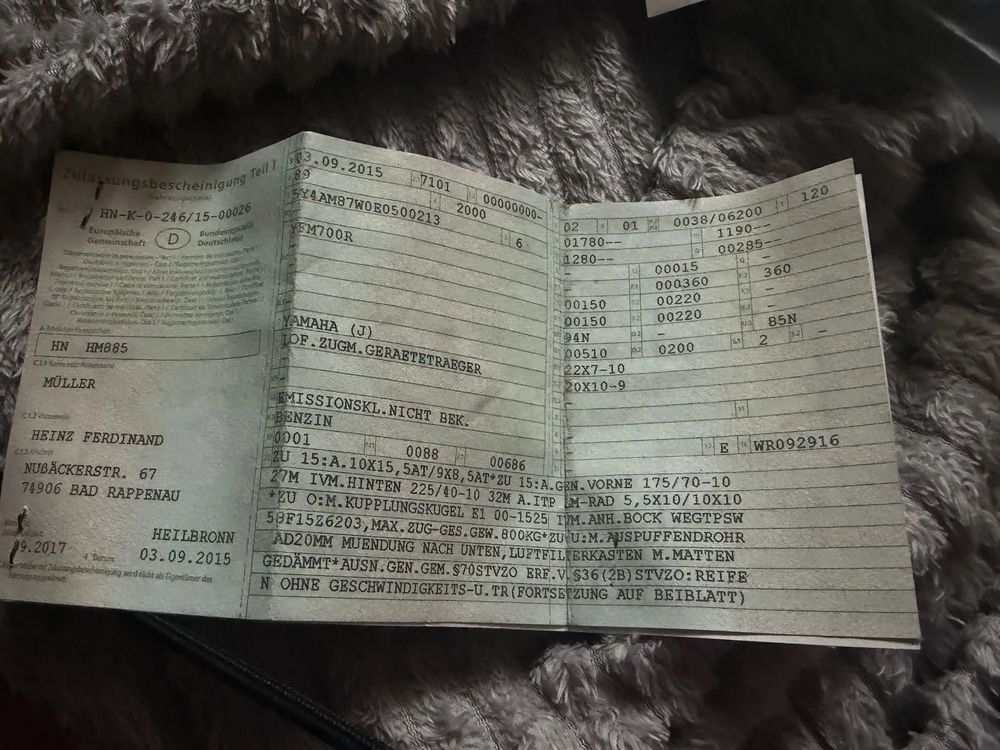 Zulassungsbescheinigung Teil I
HN-K-0-246/15-00026
Europäische Gemeinschaft D Bundesrepublik Deutschland
HN HM885
C.1.1 Name oder Firmenname
MÜLLER
C.1.2 Vorname(n)
HEINZ FERDINAND
C.1.3 Anschrift
NUßÄCKERSTR. 67
74906 BAD RAPPENAU
HEILBRONN
09.2017 Datum: 03.09.2015
der Zulassungsbescheinigung wird nicht als Eigentümer des
03.09.2015 7101 00000000-
89 2000
5Y4AM87W0E0500213 6
YFM700R
YAMAHA (J)
LOF.ZUGM.GERAETETRAEGER
EMISSIONSKL.NICHT BEK.
BENZIN
0001 0088 00686
02 01 0038/06200 120
01780-- 1190--
1280-- 00285--
00015 -
000360 360
00150 00220 -
00150 00220 -
94N - 85N
00510 0200 2 -
22X7-10
20X10-9
E WR092916
ZU 15:A.10X15,5AT/9X8,5AT*ZU 15:A.GEN.VORNE 175/70-10
27M IVM.HINTEN 225/40-10 32M A.ITP LM-RAD 5,5X10/10X10
*ZU O:M.KUPPLUNGSKUGEL E1 00-1525 IVM.ANH.BOCK WEGTPSW
58F15Z6203,MAX.ZUG-GES.GEW.800KG*ZU U:M.AUSPUFFENDROHR
AD20MM MUENDUNG NACH UNTEN,LUFTFILTERKASTEN M.MATTEN
GEDÄMMT*AUSN.GEN.GEM.§70STVZO ERF.V.§36(2B)STVZO:REIFE
N OHNE GESCHWINDIGKEITS-U.TR(FORTSETZUNG AUF BEIBLATT)